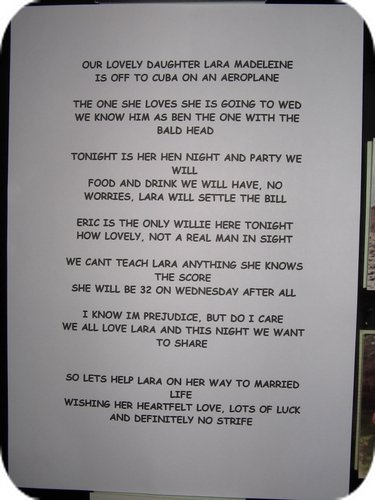 OUR LOVELY DAUGHTER LARA MADELEINE
IS OFF TO CUBA ON AN AEROPLANE
THE ONE SHE LOVES SHE IS GOING TO WED
WE KNOW HIM AS BEN THE ONE WITH THE
BALD HEAD
TONIGHT IS HER HEN NIGHT AND PARTY WE
WILL
FOOD AND DRINK WE WILL HAVE, NO
WORRIES, LARA WILL SETTLE THE BILL
ERIC IS THE ONLY WILLIE HERE TONIGHT
HOW LOVELY, NOT A REAL MAN IN SIGHT
WE CANT TEACH LARA ANYTHING SHE KNOWS
THE SCORE
SHE WILL BE 32 ON WEDNESDAY AFTER ALL
I KNOW IM PREJUDICE, BUT DO I CARE
WE ALL LOVE LARA AND THIS NIGHT WE WANT
TO SHARE
SO LETS HELP LARA ON HER WAY TO MARRIED
LIFE
WISHING HER HEARTFELT LOVE, LOTS OF LUCK
AND DEFINITELY NO STRIFE